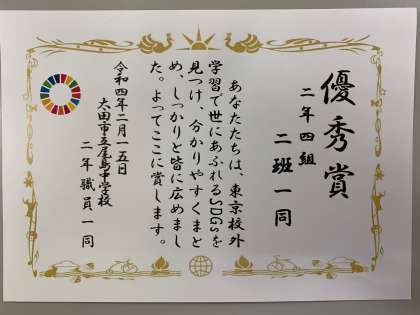 優秀賞
二年四組
二班一同
あなたたちは、東京校外
学習で世にあふれるSDGsを
見つけ、分かりやすくまと
め、しっかりと皆に広めまし
た。よってここに賞します。
令和四年二月一五日
太田市立尾島中学校
二年職員一同